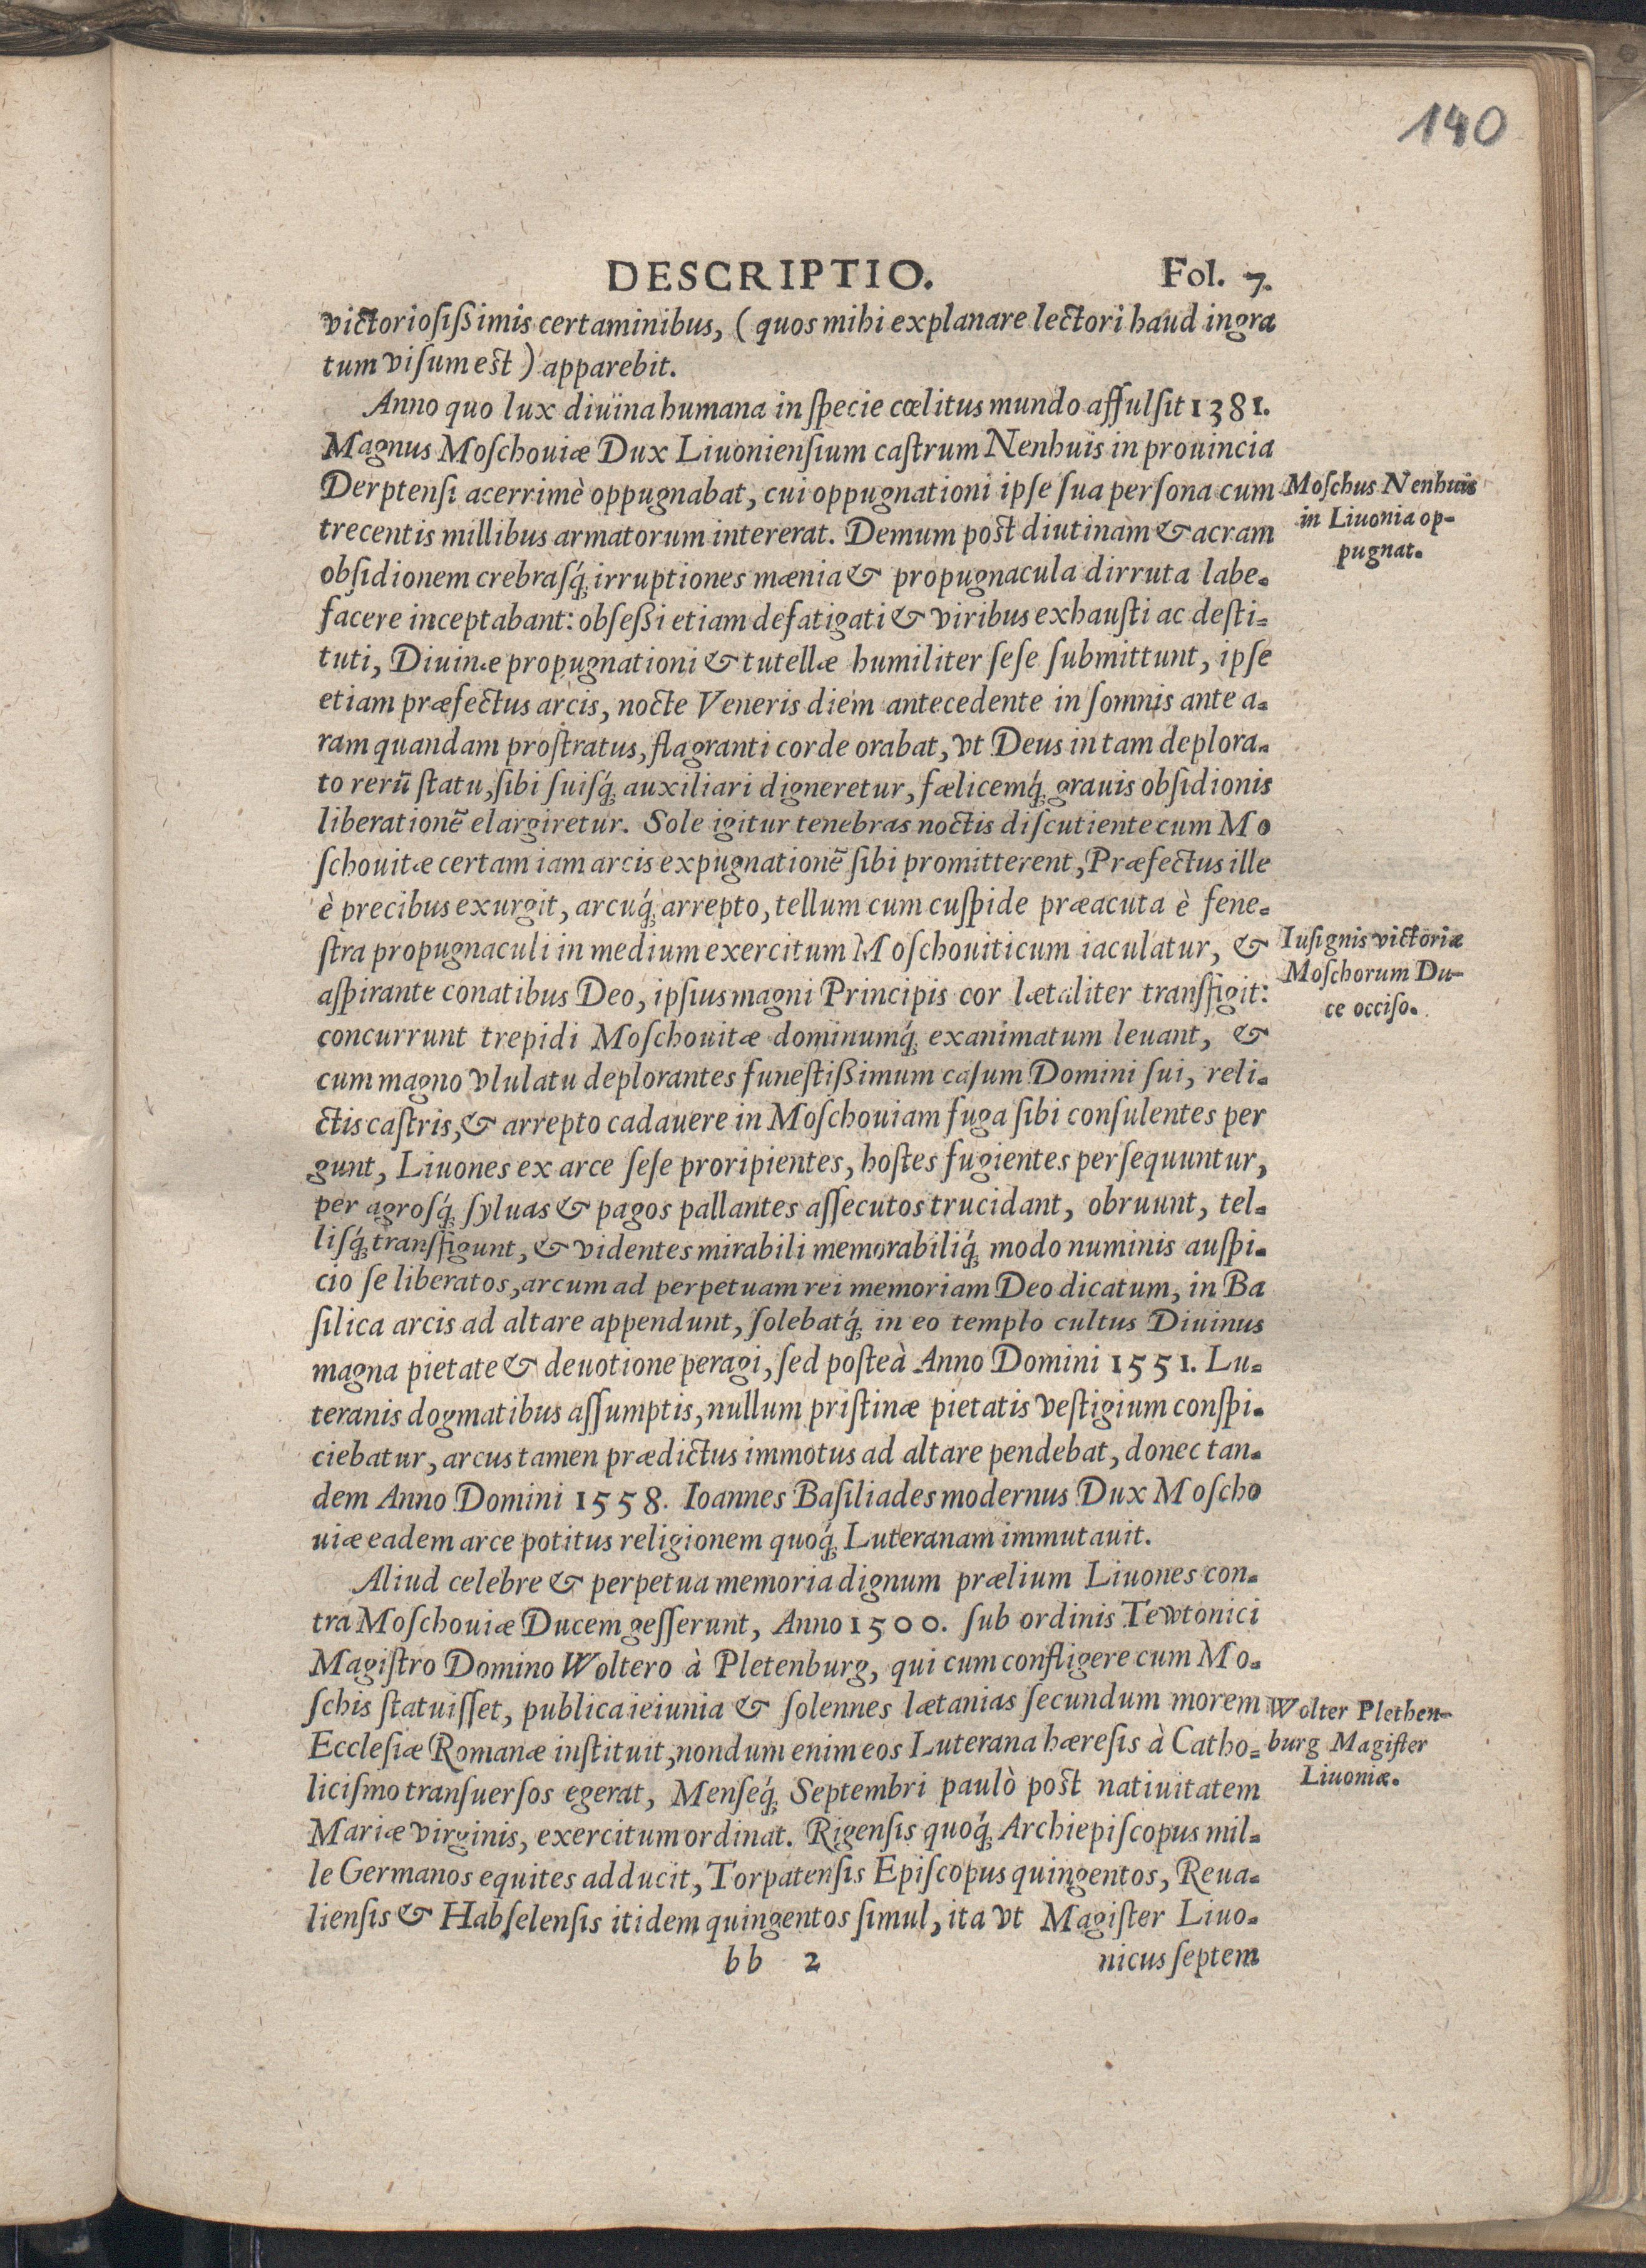 140
DESCRIPTIO. Fol. 7.
victoriosißimis certaminibus, (quos mihi explanare lectori haud ingra
tum visum est) apparebit.
Anno quo lux diuina humana in specie cœlitus mundo affulsit 1381.
Magnus Moschouiæ Dux Liuoniensium castrum Nenhuis in prouincia
Derptensi acerrimè oppugnabat, cui oppugnationi ipse sua persona cum
trecentis millibus armatorum intererat. Demum post diutinam & acram
obsidionem crebrasq́; irruptiones mænia & propugnacula dirruta labe-
facere inceptabant: obseßi etiam defatigati & viribus exhausti ac desti-
tuti, Diuinæ propugnationi & tutellæ humiliter sese submittunt, ipse
etiam præfectus arcis, nocte Veneris diem antecedente in somnis ante a-
ram quandam prostratus, flagranti corde orabat, vt Deus in tam deplora-
to rerũ statu, sibi suisq́; auxiliari digneretur, fælicemq́; grauis obsidionis
liberationẽ elargiretur. Sole igitur tenebras noctis discutiente cum Mo
schouitæ certam iam arcis expugnationẽ sibi promitterent, Præfectus ille
è precibus exurgit, arcuq́; arrepto, tellum cum cuspide præacuta è fene-
stra propugnaculi in medium exercitum Moschouiticum iaculatur, &
aspirante conatibus Deo, ipsius magni Principis cor lætaliter transfigit:
concurrunt trepidi Moschouitæ dominumq́; exanimatum leuant, &
cum magno vlulatu deplorantes funestißimum casum Domini sui, reli-
ctis castris, & arrepto cadauere in Moschouiam fuga sibi consulentes per
gunt, Liuones ex arce sese proripientes, hostes fugientes persequuntur,
per agrosq́; syluas & pagos pallantes assecutos trucidant, obruunt, tel-
lisq́; transfigunt, & videntes mirabili memorabiliq́; modo numinis auspi-
cio se liberatos, arcum ad perpetuam rei memoriam Deo dicatum, in Ba
silica arcis ad altare appendunt, solebatq́; in eo templo cultus Diuinus
magna pietate & deuotione peragi, sed posteà Anno Domini 1551. Lu-
teranis dogmatibus assumptis, nullum pristinæ pietatis vestigium conspi-
ciebatur, arcus tamen prædictus immotus ad altare pendebat, donec tan-
dem Anno Domini 1558. Ioannes Basiliades modernus Dux Moscho
uiæ eadem arce potitus religionem quoq́; Luteranam immutauit.
Aliud celebre & perpetua memoria dignum prælium Liuones con-
tra Moschouiæ Ducem gesserunt, Anno 1500. sub ordinis Tewtonici
Magistro Domino Woltero à Pletenburg, qui cum confligere cum Mo-
schis statuisset, publica ieiunia & solennes lætanias secundum morem
Ecclesiæ Romanæ instituit, nondum enim eos Luterana hæresis à Catho-
licismo transuersos egerat, Menseq́; Septembri paulò post natiuitatem
Mariæ virginis, exercitum ordinat. Rigensis quoq́; Archiepiscopus mil-
le Germanos equites adducit, Torpatensis Episcopus quingentos, Reua-
liensis & Habselensis itidem quingentos simul, ita vt Magister Liuo-
bb 2 nicus septem
Moschus Nenhuis
in Liuonia op-
pugnat.
Iusignis victoriæ
Moschorum Du-
ce occiso.
Wolter Plethen-
burg Magister
Liuoniæ.